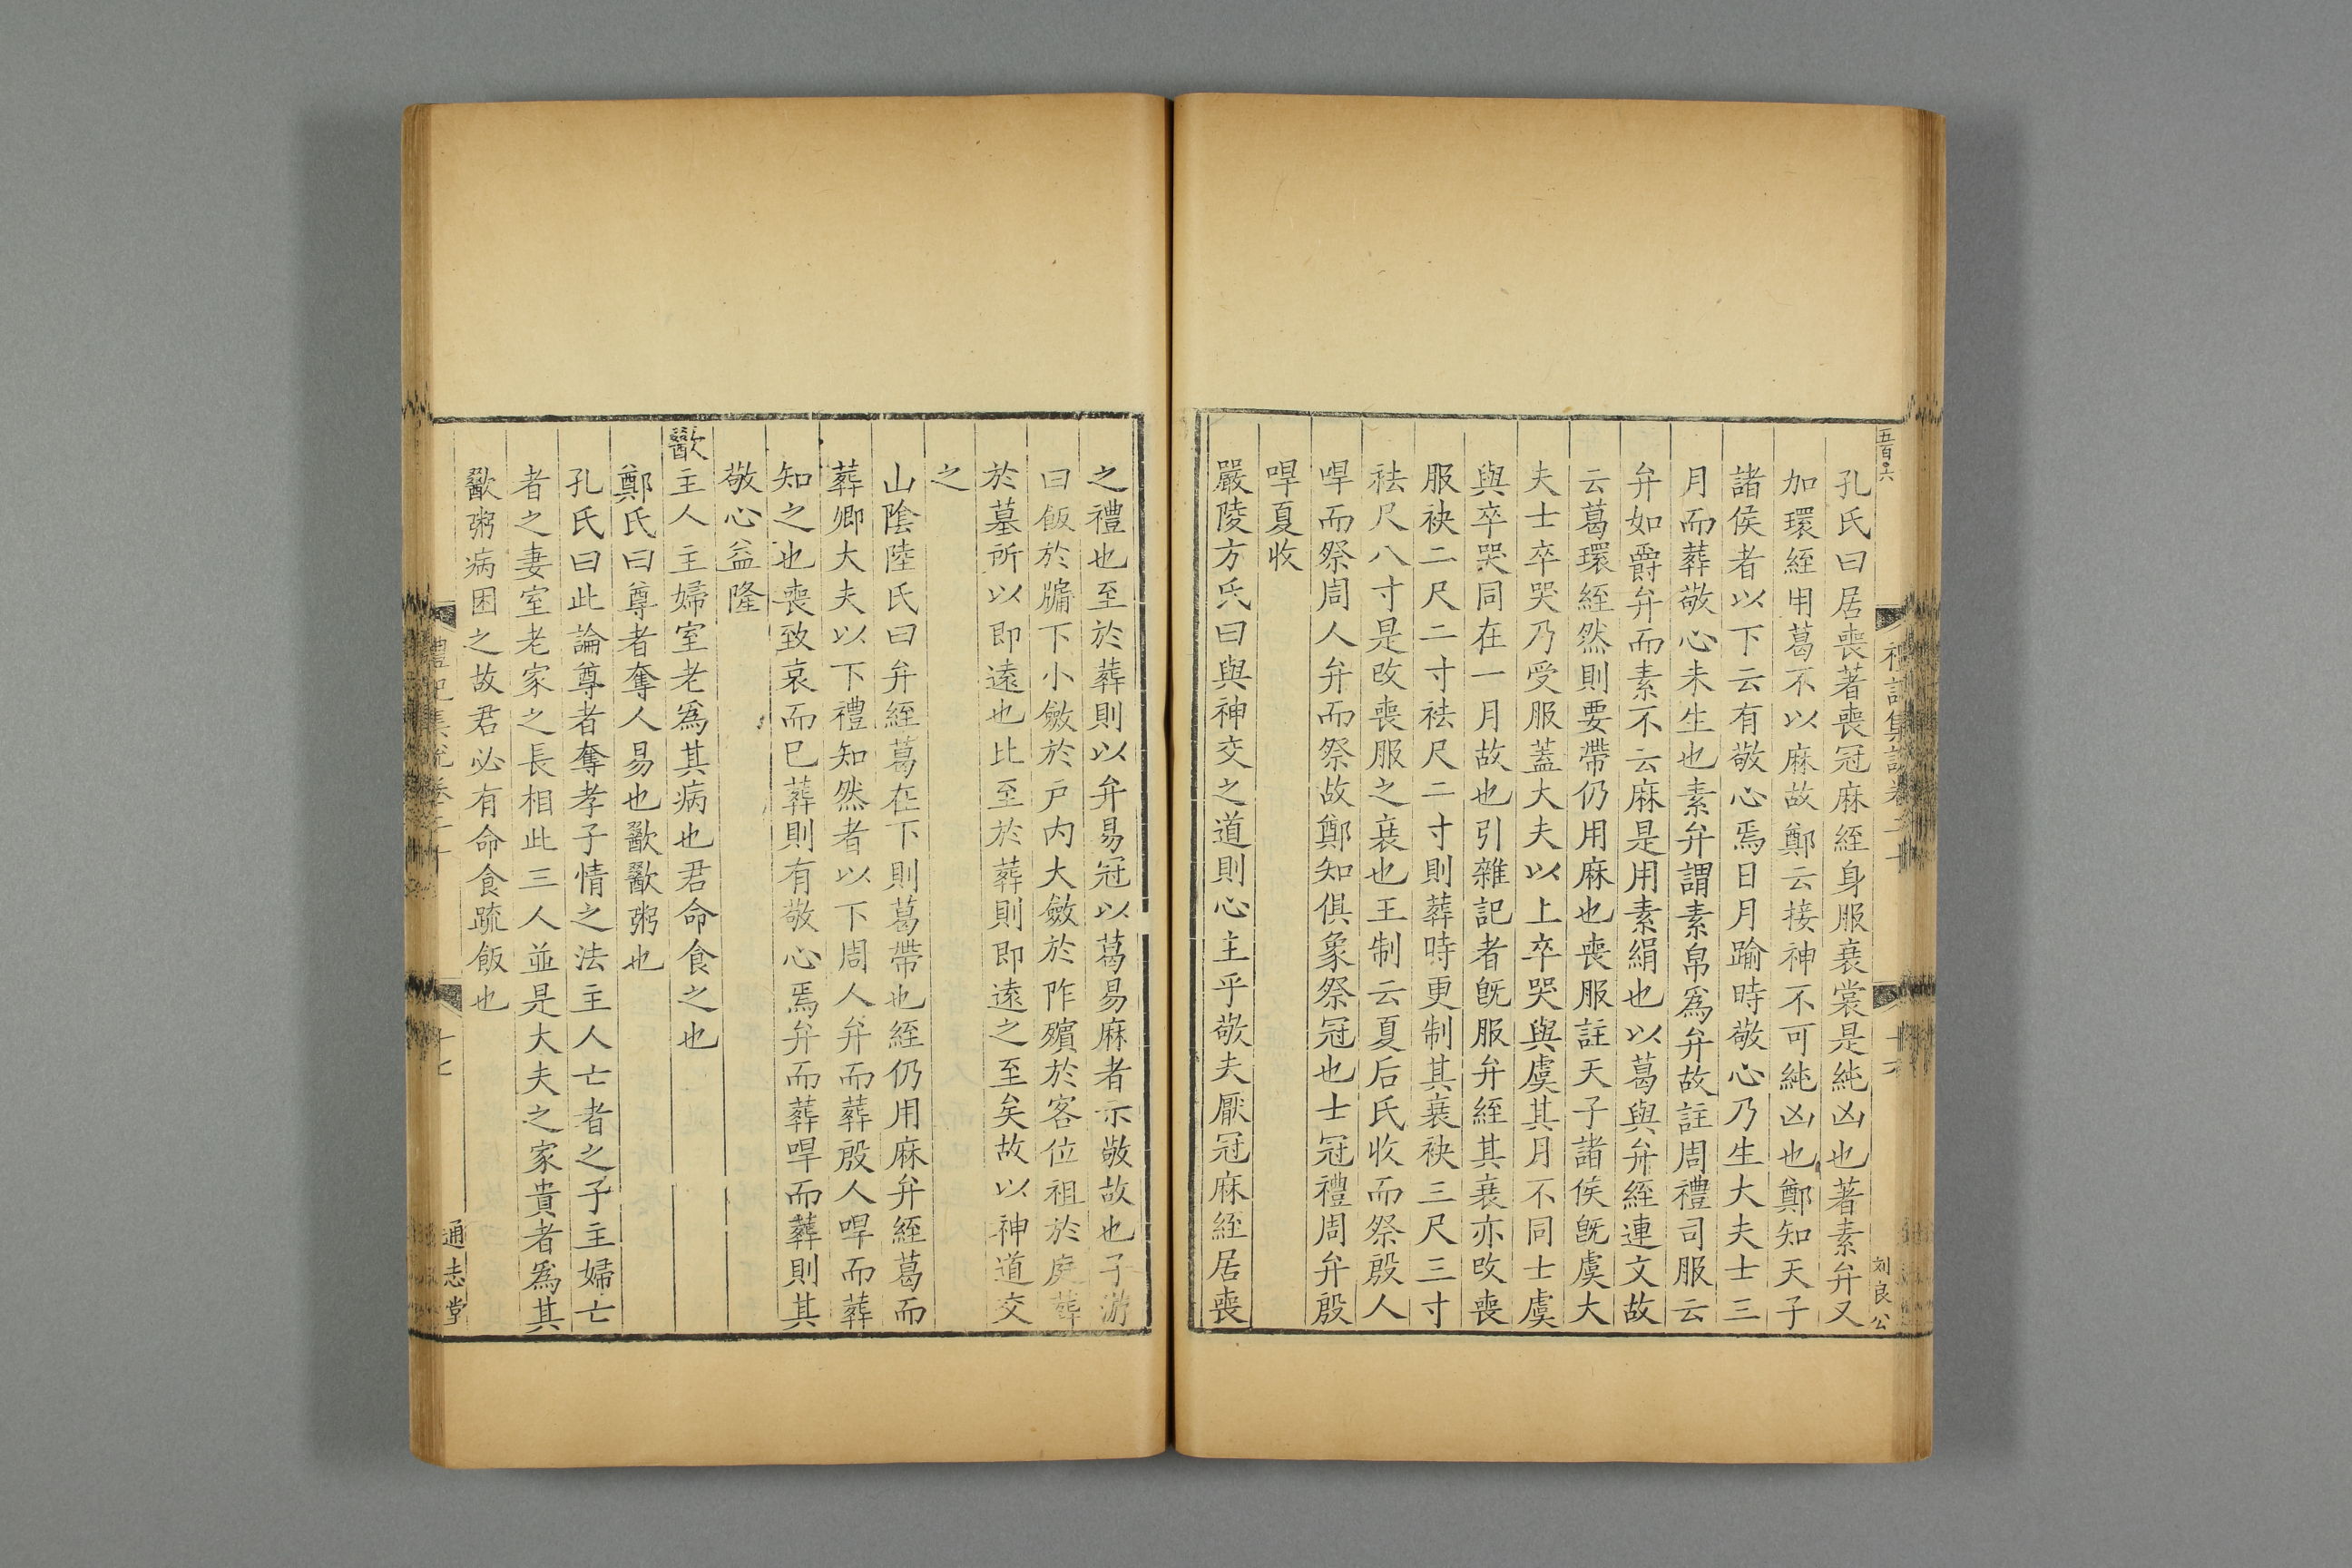 五百六
禮記集說卷二十
十六
刘良公
孔氏曰居喪著喪冠麻絰身服衰裳是純凶也著素弁又
加環絰用葛不以麻故鄭云接神不可純凶也鄭知天子
諸侯者以下云有敬心焉日月踰時敬心乃生大夫士三
月而葬敬心未生也素弁謂素帛爲弁故註周禮司服云
弁如爵弁而素不云麻是用素絹也以葛與弁絰連文故
云葛環絰然則要帶仍用麻也喪服註天子諸侯旣虞大
夫士卒哭乃受服蓋大夫以上卒哭與虞其月不同士虞
與卒哭同在一月故也引雜記者旣服弁絰其衰亦改喪
服袂二尺二寸袪尺二寸則葬時更制其衰袂三尺三寸
袪尺八寸是改喪服之衰也王制云夏后氏收而祭殷人
哻而祭周人弁而祭故鄭知俱象祭冠也士冠禮周弁殷
哻夏收
嚴陵方氏曰與神交之道則心主乎敬夫厭冠麻絰居喪
之禮也至於葬則以弁易冠以葛易麻者示敬故也子游
曰飯於牖下小斂於戶內大斂於阼殯於客位祖於庭葬
於墓所以即遠也比至於葬則即遠之至矣故以神道交
之
山陰陸氏曰弁絰葛在下則葛帶也絰仍用麻弁絰葛而
葬卿大夫以下禮知然者以下周人弁而葬殷人哻而葬
知之也喪致哀而已葬則有敬心焉弁而葬哻而葬則其
敬心益隆
歠主人主婦室老爲其病也君命食之也
鄭氏曰尊者奪人易也歠歠粥也
孔氏曰此論尊者奪孝子情之法主人亡者之子主婦亡
者之妻室老家之長相此三人並是大夫之家貴者爲其
歠粥病困之故君必有命食疏飯也
禮記集說卷二十
十七
通志堂